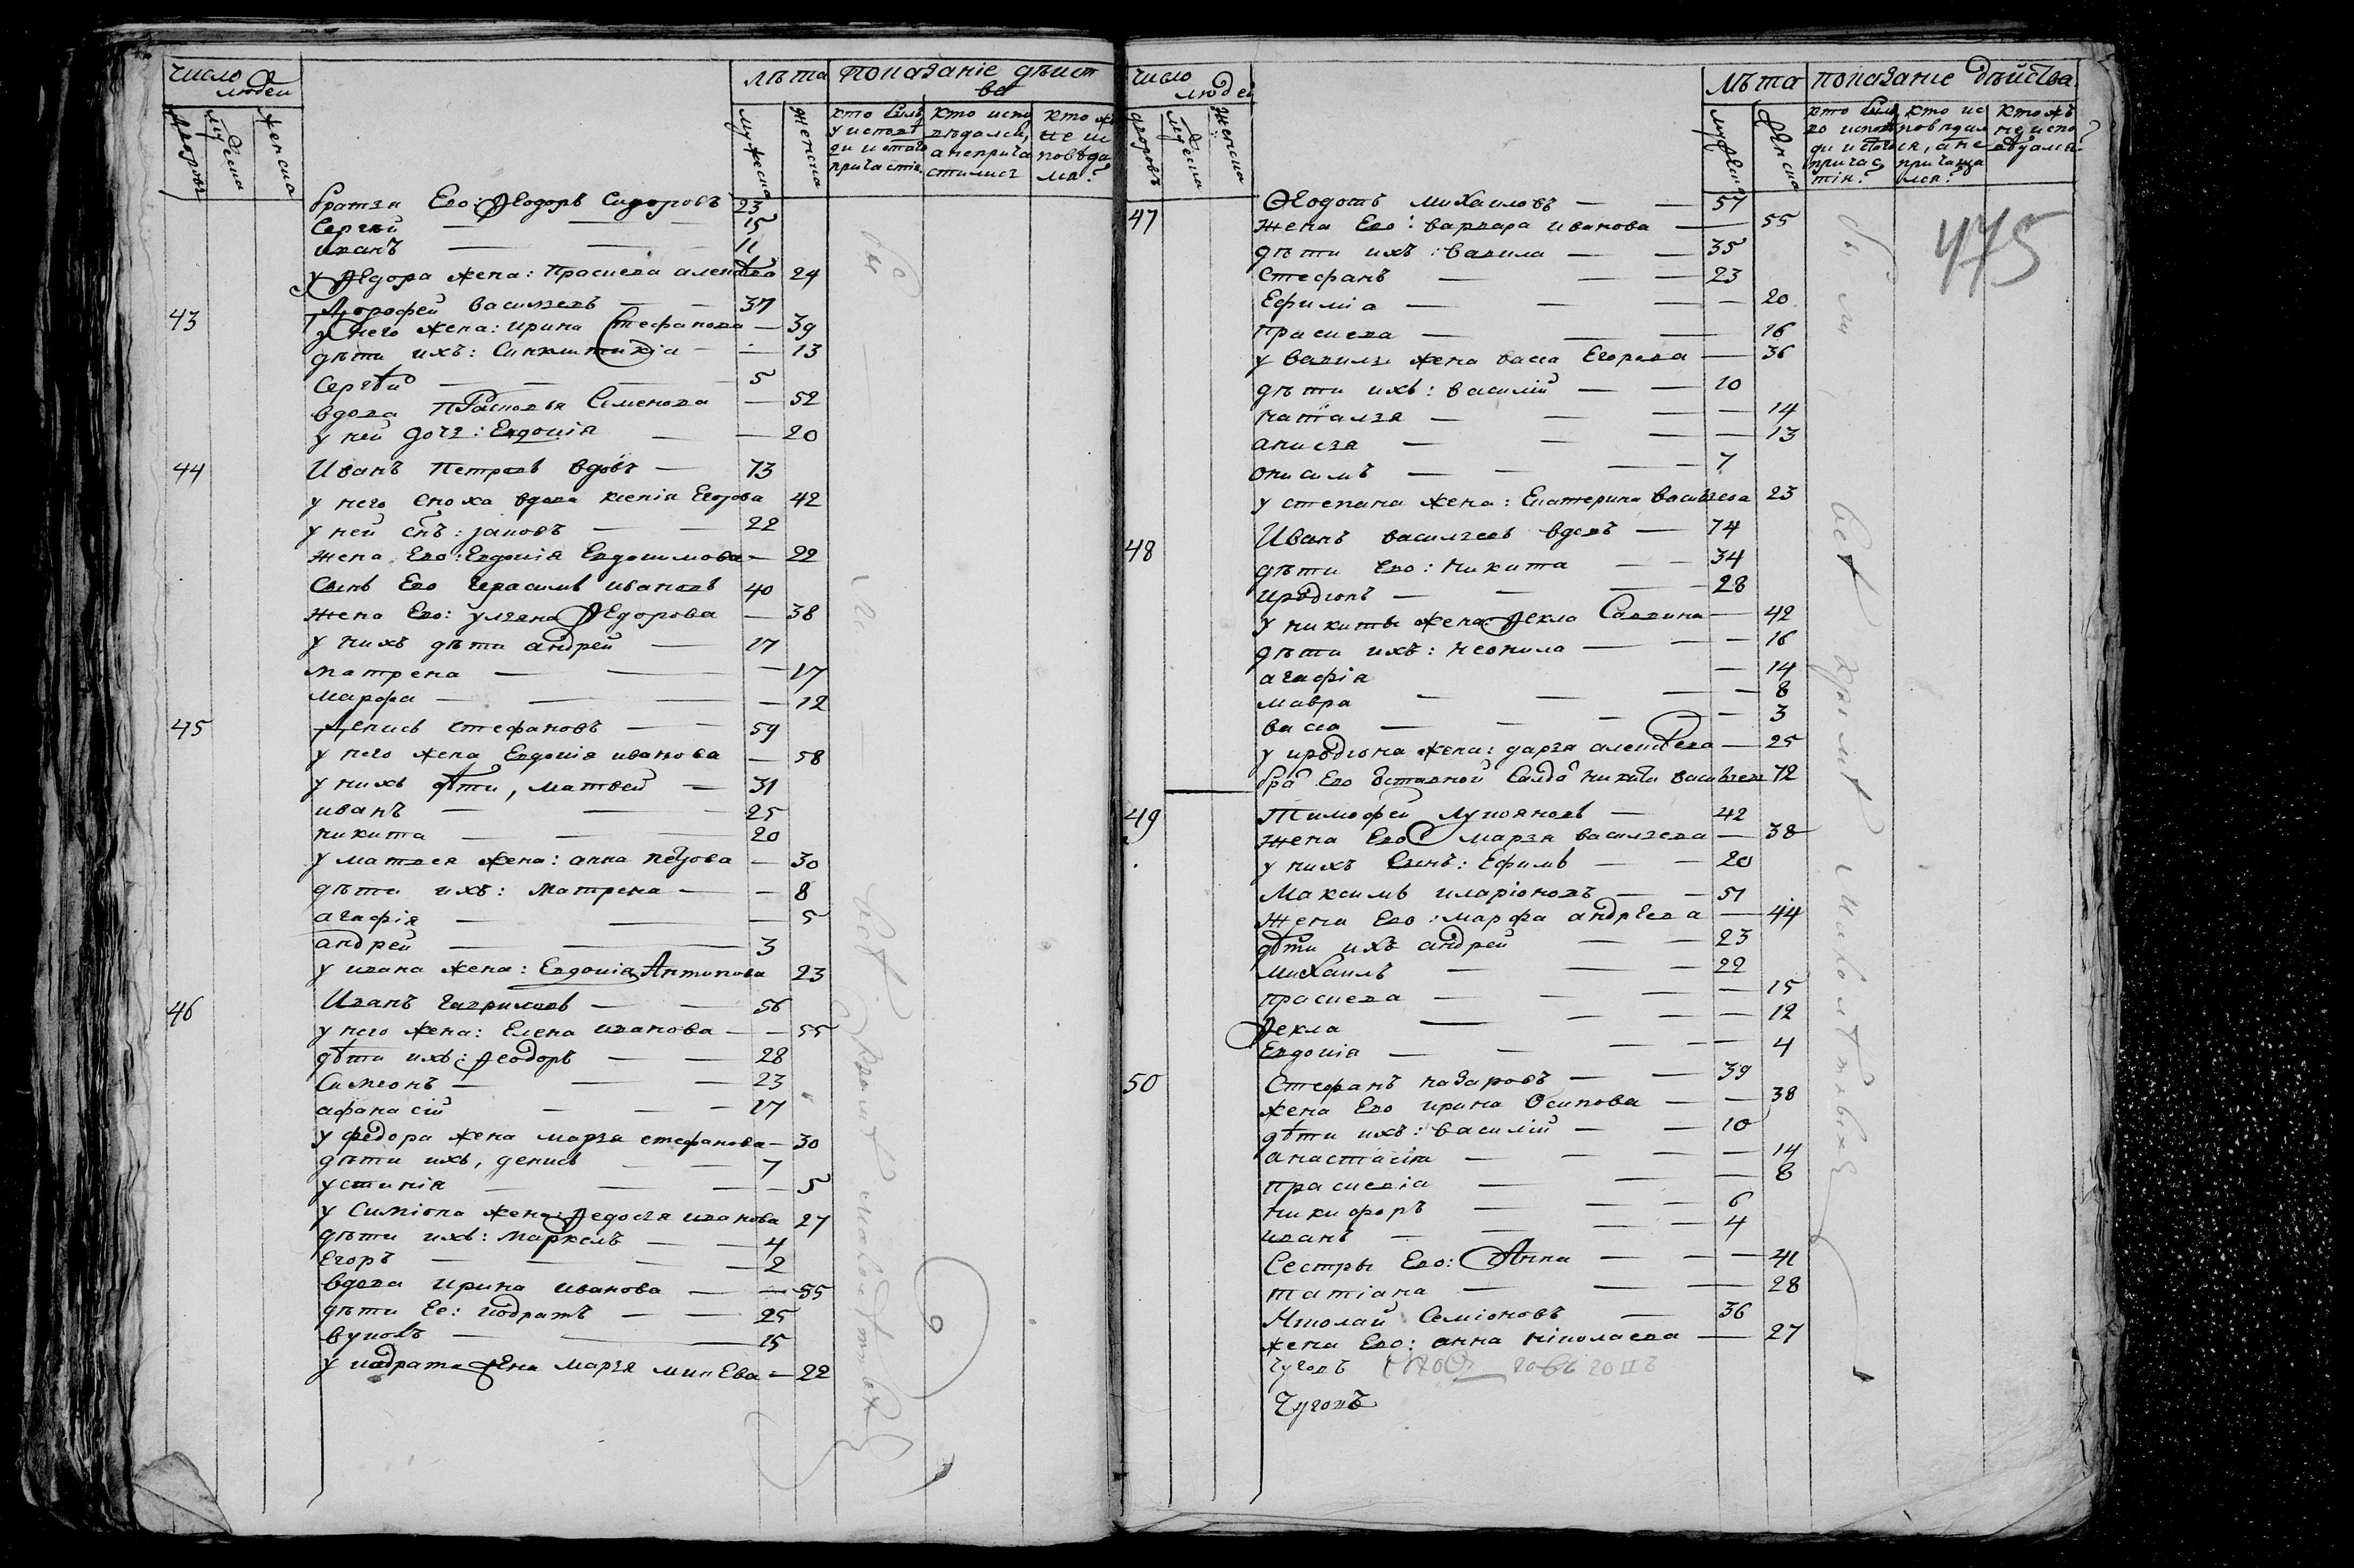 число людей
лѣта
показаніе дѣист
ва
дворовъ
мужеска
женска
мужеска
женска
кто былъ у исповѣди и с. таго причастія
кто испо вѣдался, а непричастился
кто жъ не исповѣдался?
братья Его: Ѳеодоръ Сидоровъ 23
Сергѣй — — 15
иванъ — — 11
у Ѳедора жена: Прасковя алеѯѣева 24
43 Дорофей васильевъ — — 37
у него жена: ирина Стефанова — 39
дѣти ихъ: Синклитикіа — — 13
Сергѣй — — — 5
вдова Прасковья Семенова — 52
у ней дочь: Евдокія — — 20
44 Иванъ Петровъ вдовъ — 73
у него сноха вдова ксенія Егорова 42
у ней снъ: іаковъ — — 22
жена Его: Евдокія Евдокимова — 22
Сынъ Его Герасимъ ивановъ 40
жена Его: ульяна Ѳедорова — 38
у нихъ дѣти андрей — 17
матрена — — — 17
марфа — — — — 12
45 Денисъ стефановъ — — 59
у него жена Евдокія иванова — 58
у нихъ дѣти, матвей — 31
иванъ — — — 25
никита — — — 20
у матвея жена: анна петрова — 30
дѣти ихъ: матрена — — 8
агафія — — — 5
андрей — — 3
у ивана жена: Евдокія Антипова 23
46 Иванъ гавриловъ — — 56
у него жена: Елена иванова — — 55
дѣти ихъ: Ѳеодоръ — — 28
Симеонъ — — — 23
афанасій — — — 17
у федора жена марья стефанова — 30
дѣти ихъ, денисъ — — 7
устинія — — — — 5
у Симіона жена: Ѳедосья иванова 27
дѣти ихъ: маркелъ — — 4
Егоръ — — — — 2
вдова ирина иванова — — 55
дѣти Ее: кодратъ — — 25
вуколъ — — — 15
у кодрата жена марья минЕва — 22
бы ли всѣ кромѣ малолѣтныхъ
число людей
лѣта
показаніе дѣйства
дворовъ
мужеска
женска
мужеска
женска
кто былъ во исповѣди и с. таго причастія?
кто исповѣдался, а не причащался?
кто жъ не исповѣдался?
475
47 Ѳеодотъ михаиловъ — — 57
жена Его: варвара иванова — 55
дѣти ихъ: вавила — — 35
Стефанъ — — — 23
Ефиміа — — — — 20
прасковя — — — 16
у вавилы жена васса Егорова — 36
дѣти ихъ: василій — — 10
наталья — — — — 14
анисья — — — — 13
онисимъ — — — 7
у степана жена: Екатерина васильева 23
48 Иванъ васильевъ вдовъ — 74
дѣти Его: никита — — 34
иродіонъ — — — 28
у никиты жена: Ѳекла Саввина — 42
дѣти ихъ: неонила — — — 16
агафіа — 14
мавра — — — — 8
васса — — — — 3
у иродіона жена: дарья алеѯѣева — 25
бра Его отставной Салда никита васильевъ 72
49 Тимофей лукояновъ — 42
жена Его марья васильева — 38
у нихъ сынъ: Ефимъ — — 20
Максимъ иларіоновъ — — 51
жена Его: марфа андрѣева — 44
дѣти ихъ андрей — — 23
михаилъ — — — 22
прасковя — — — — 15
Ѳекла — — — 12
Евдокіа — — — — 4
50 Стефанъ назаровъ — — 39
жена Его ирина осипова — — 38
дѣти ихъ: василій — — 10
анастасіа — — — — 14
прасковіа — — — 8
никифоръ — — — 6
иванъ — — — 4
Сестры Его: Анна — — — 41
татіана — — — 28
Николай Семіоновъ — 36
жена Его: анна ніколаева — 27
Чугонъ
бы ли всѣ кромѣ малолѣтныхъ